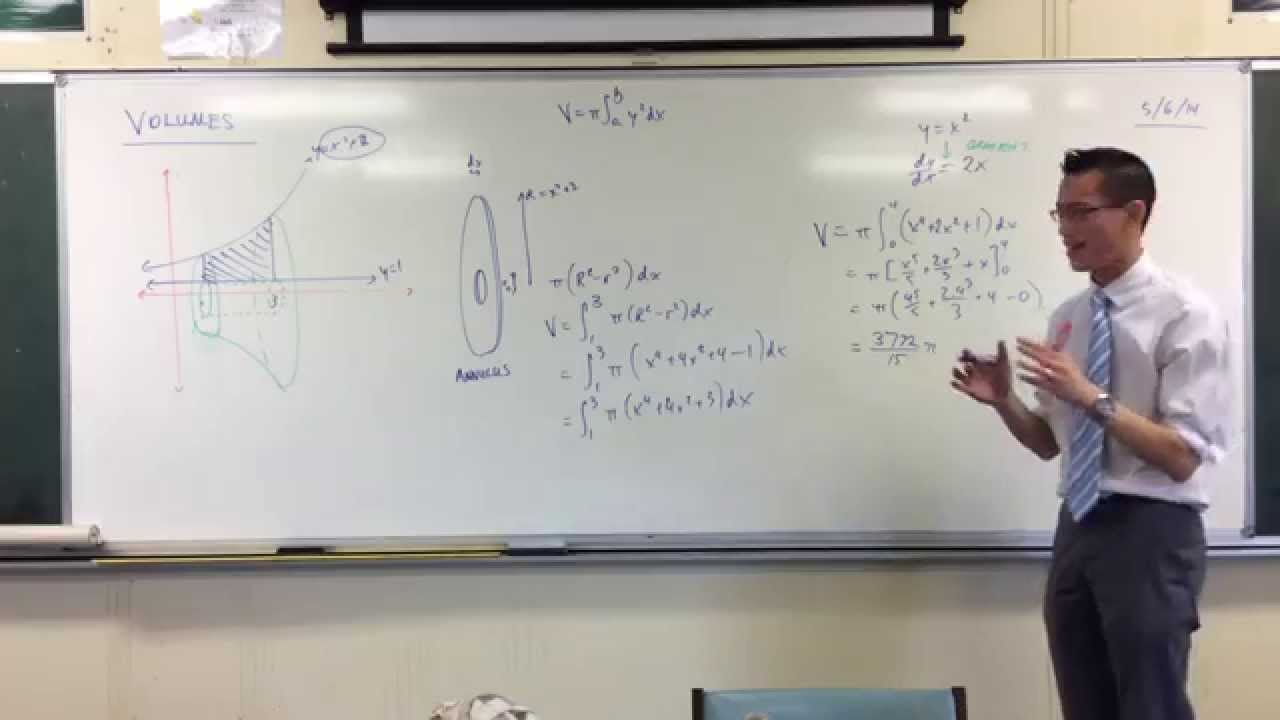 VOLUMES
y=x²+2
y=1
1
3
V=π∫ₐᵇ y²dx
dx
R=x²+2
ANNULUS
π(R²-r²)dx
V=∫₁³ π(R²-r²)dx
=∫₁³ π(x⁴+4x²+4-1)dx
=∫₁³ π(x⁴+4x²+3)dx
5/6/14
y=x²
↓ GRADIENT
dy/dx = 2x
V=π∫₀⁴(x⁴+2x²+1)dx
=π[x⁵/5+2x³/3+x]₀⁴
=π(4⁵/5+2.4³/3+4-0)
=3772/15 π